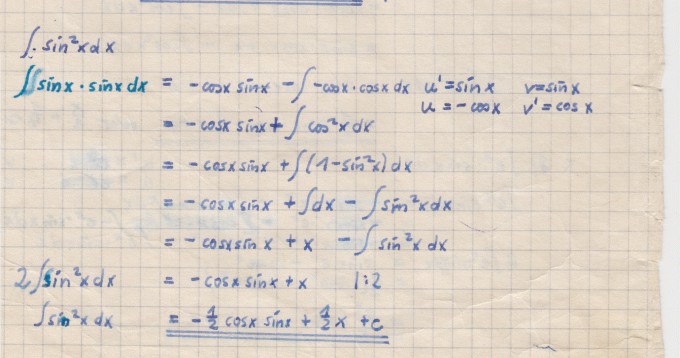 ∫ sin²x dx
∫ sinx · sinx dx = -cosx sinx - ∫ -cosx · cosx dx u' = sinx v = sinx
u = -cosx v' = cosx
= -cosx sinx + ∫ cos²x dx
= -cosx sinx + ∫ (1 - sin²x) dx
= -cosx sinx + ∫ dx - ∫ sin²x dx
= -cosx sinx + x - ∫ sin²x dx
2 ∫ sin²x dx = -cosx sinx + x |:2
∫ sin²x dx = -1/2 cosx sinx + 1/2 x + c